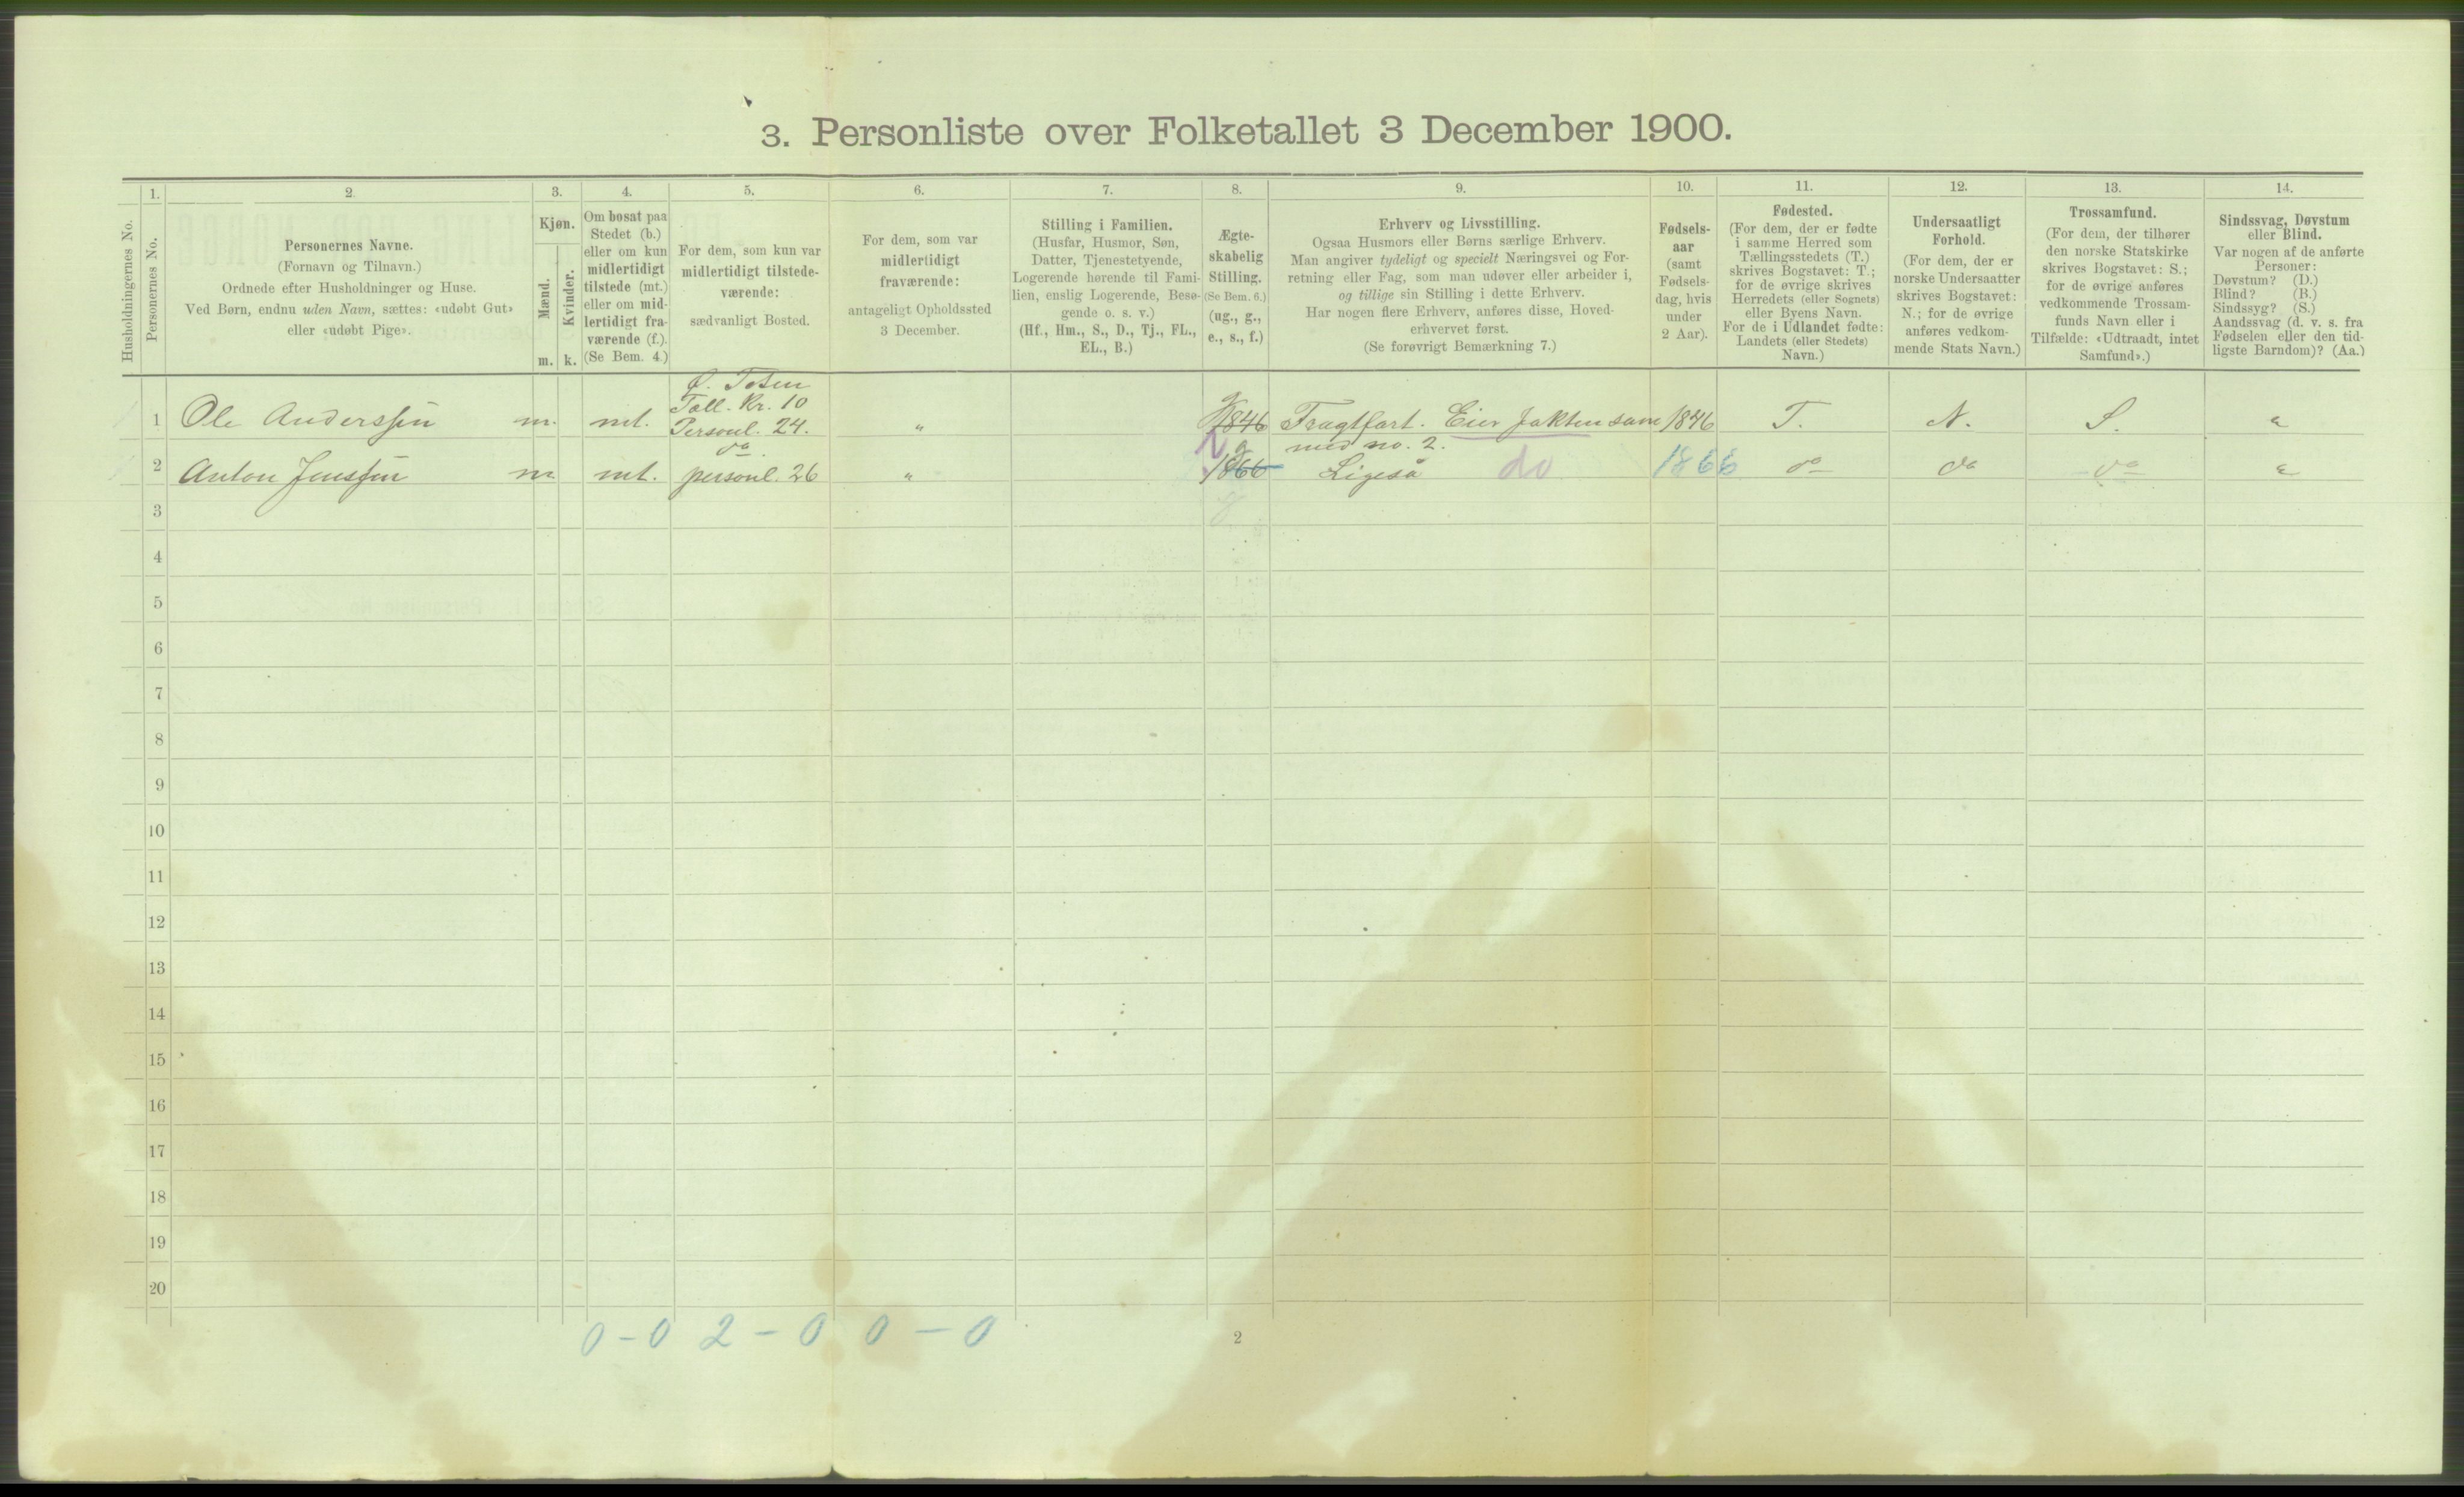 3. Personliste over Folketallet 3 December 1900.
Husholdningernes No.
1.
Personernes No.
2.
Personernes Navne.
(Fornavn og Tilnavn.)
Ordnede efter Husholdninger og Huse.
Ved Børn, endnu uden Navn, sættes: «udøbt Gut»
eller «udøbt Pige».
3.
Kjøn.
Mænd.
m.
Kvinder.
k.
4.
Om bosat paa
Stedet (b.)
eller om kun
midlertidigt
tilstede (mt.)
eller om mid-
lertidigt fra-
værende (f.).
(Se Bem. 4.)
5.
For dem, som kun var
midlertidigt tilstede-
værende:
sædvanligt Bosted.
6.
For dem, som var
midlertidigt
fraværende:
antageligt Opholdssted
3 December.
7.
Stilling i Familien.
(Husfar, Husmor, Søn,
Datter, Tjenestetyende,
Logerende hørende til Fami-
lien, enslig Logerende, Besø-
gende o. s. v.)
(Hf., Hm., S., D., Tj., FL.,
EL., B.)
8.
Ægte-
skabelig
Stilling.
(Se Bem. 6.)
(ug., g.,
e., s., f.)
9.
Erhverv og Livsstilling.
Ogsaa Husmors eller Børns særlige Erhverv.
Man angiver tydeligt og specielt Næringsvei og For-
retning eller Fag, som man udøver eller arbeider i,
og tillige sin Stilling i dette Erhverv.
Har nogen flere Erhverv, anføres disse, Hoved-
erhvervet først.
(Se forøvrigt Bemærkning 7.)
10.
Fødsels-
aar
(samt
Fødsels-
dag, hvis
under
2 Aar).
11.
Fødested.
(For dem, der er fødte
i samme Herred som
Tællingsstedets (T.)
skrives Bogstavet: T.;
for de øvrige skrives
Herredets (eller Sognets)
eller Byens Navn.
For de i Udlandet fødte:
Landets (eller Stedets)
Navn.)
12.
Undersaatligt
Forhold.
(For dem, der er
norske Undersaatter
skrives Bogstavet:
N.; for de øvrige
anføres vedkom-
mende Stats Navn.)
13.
Trossamfund.
(For dem, der tilhører
den norske Statskirke
skrives Bogstavet: S.;
for de øvrige anføres
vedkommende Trossam-
funds Navn eller i
Tilfælde: «Udtraadt, intet
Samfund».)
14.
Sindssvag, Døvstum
eller Blind.
Var nogen af de anførte
Personer:
Døvstum? (D.)
Blind? (B.)
Sindssyg? (S.)
Aandssvag (d. v. s. fra
Fødselen eller den tid-
ligste Barndom)? (Aa.)
1 Ole Anderssen m. mt. Tæll. Kr. 10
Personl. 24. " g 1846 Fragtfart. Eier Jakten sam 1846 T. N. S. "
med no. 2.
2 Anton Jenssen m mt. do personl. 26 " g 1866 Ligeså do 1866 do do do "
3
4
5
6
7
8
9
10
11
12
13
14
15
16
17
18
19
20
0-0 2-0 0-0
2